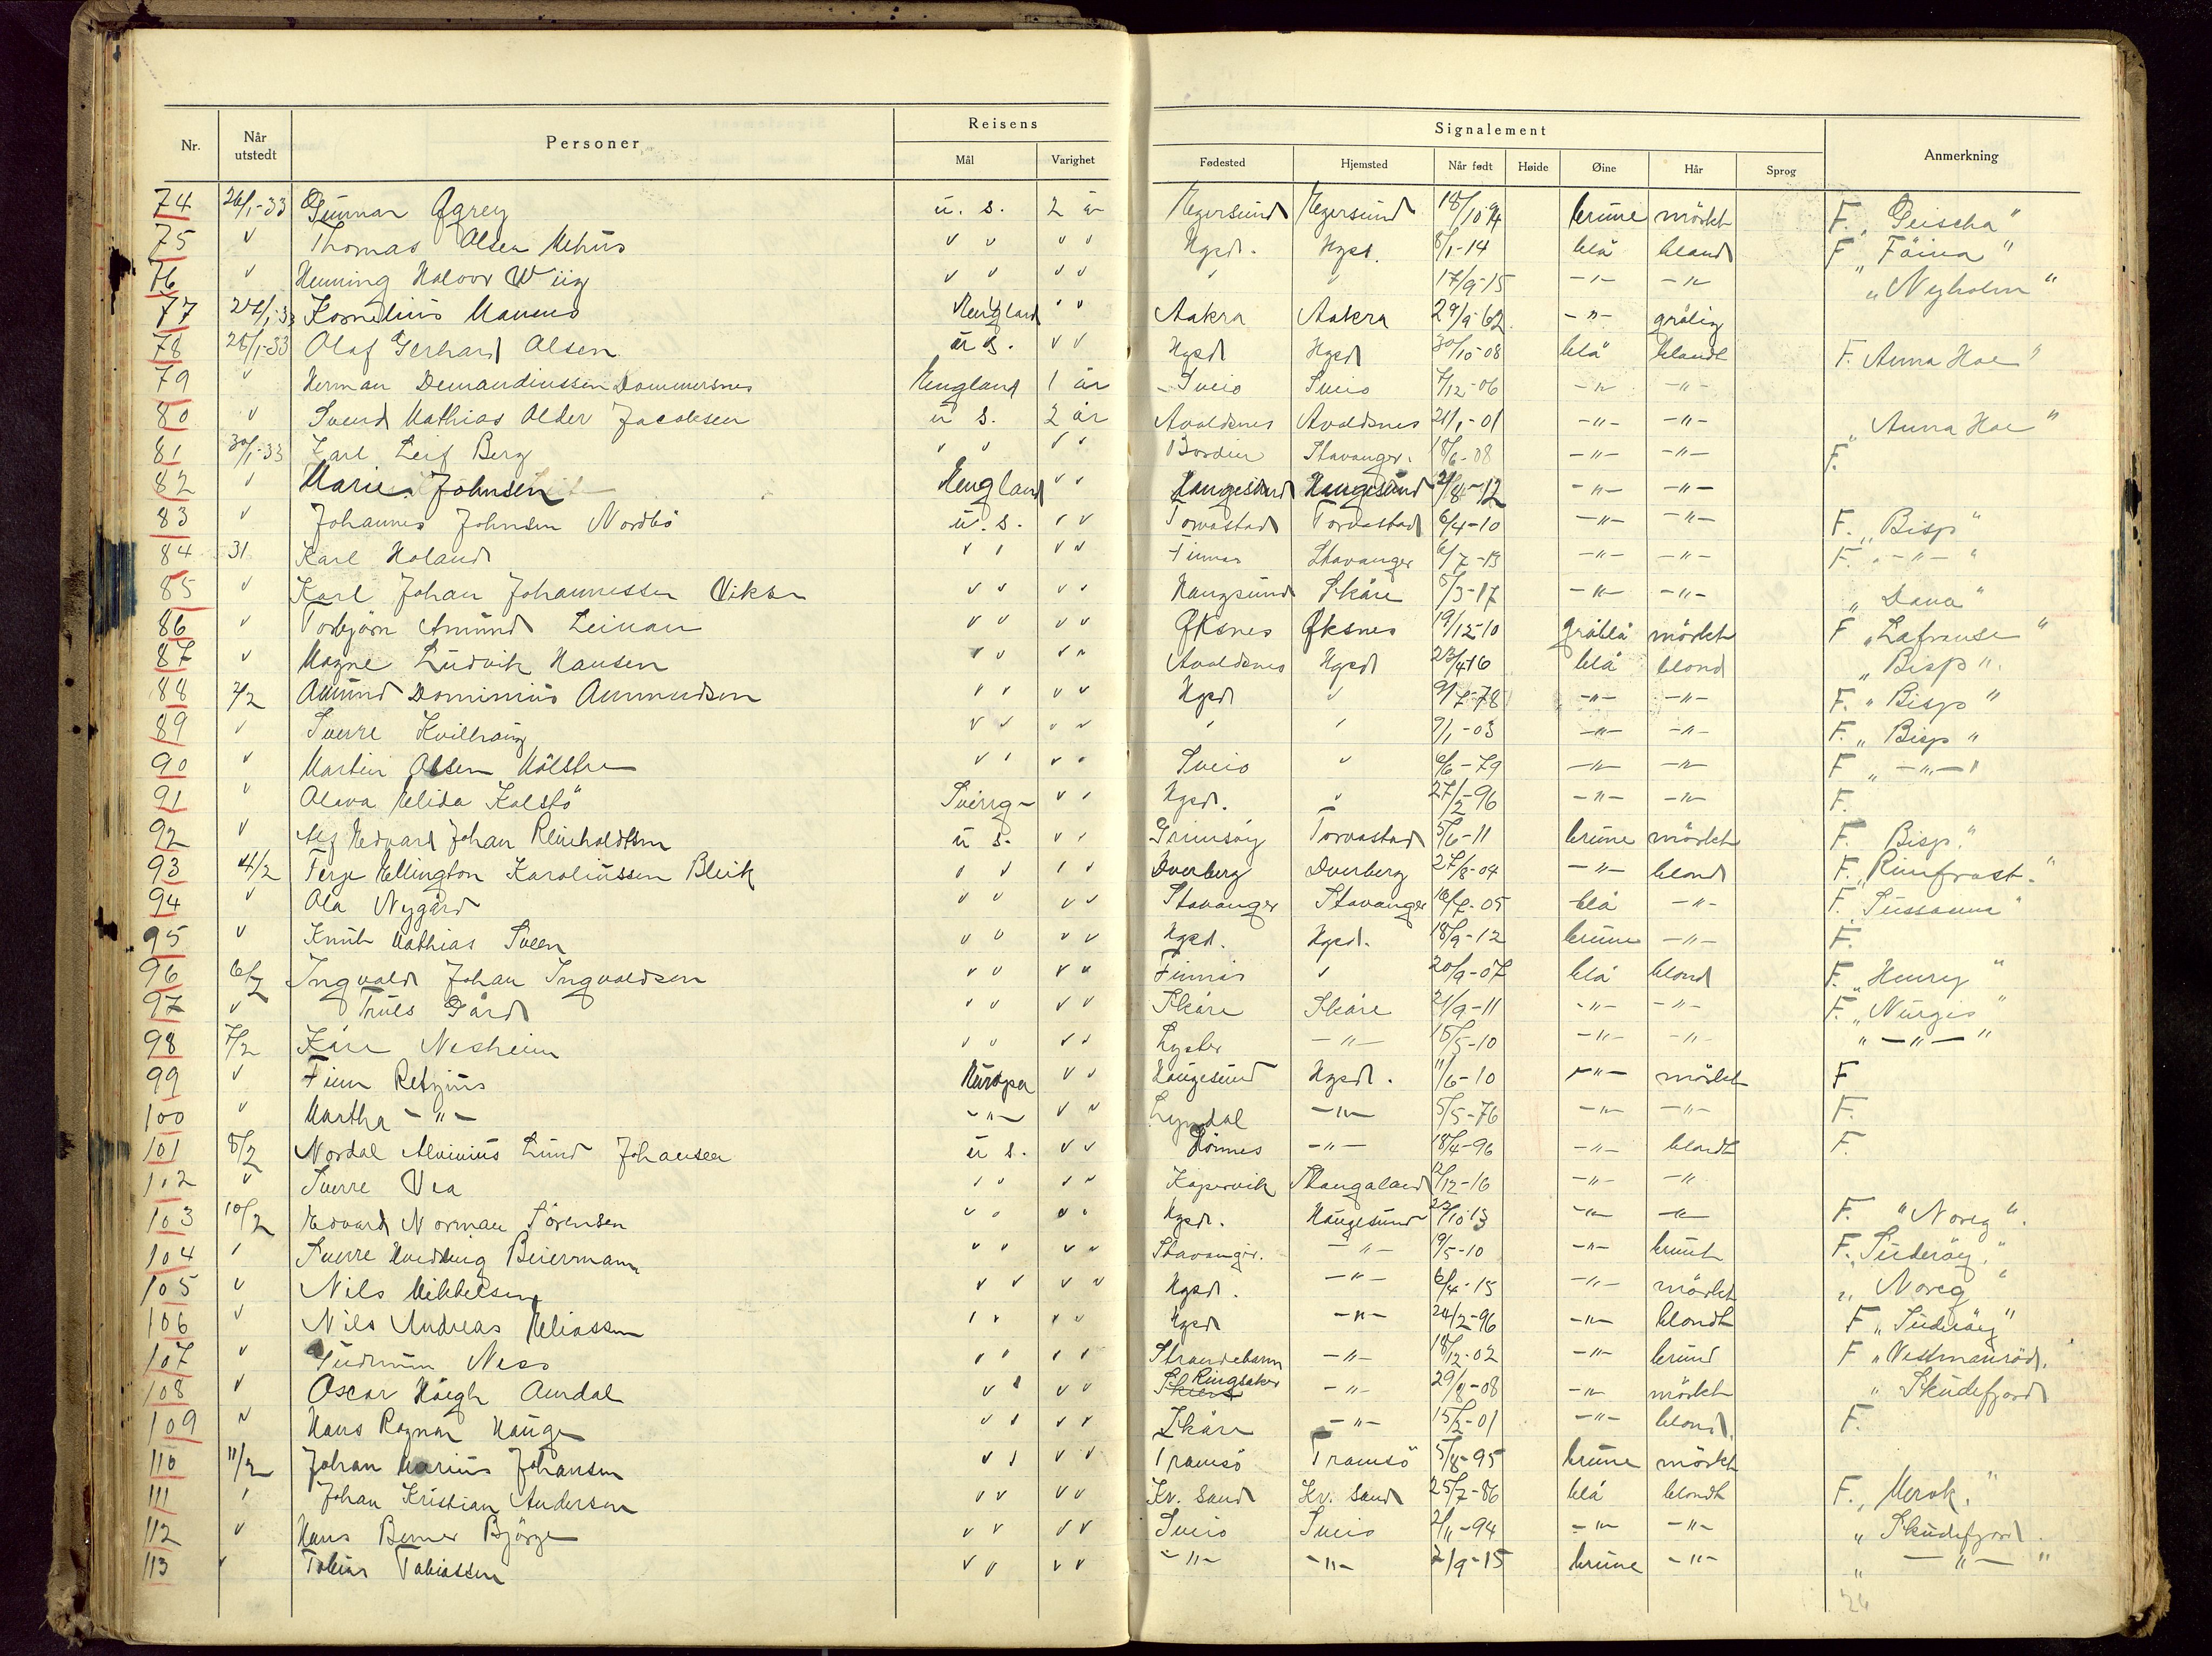 Nr. Når utstedt Personer Reisens Mål Varighet Signalement Fødested Hjemsted Når født Høide Øine Hår Sprog Anmerkning
74 26/1-33 Gunnar u. s. 2 år Egersund Egersund 18/10 brune mörkt F. „Geischa"
75 " Thomas Olsen Mehus " " " " Hgsd. Hgsd. 8/1-14 blå blond F „Fäina"
76 " Henning Halvor Wiig " " " " " " 17/9-15 -"- -"- „Nyholm"
77 27/1-33 Kornelius England " " Aakra Aakra 29/9-62 -"- grålig
78 28/1-33 Olaf Gerhard Olsen u s. " " Hgsd Hgsd 30/10-08 blå blondt F. Anna Hoe"
79 " Herman Demandiussen Dommersnes England 1 år Sveio Sveio 7/12-06 -"- -"-
80 " Svend Mathias Older Jacobsen u s. 2 år Avaldsnes Avaldsnes 21/1-01 -"- -"- „Anna Hoe"
81 30/1-33 Karl Leif Berg " " " " Stavanger. 18/6-08 -"- -"- F.
82 " Marie Johnsen England " " Haugesund Haugesund 21/8-12 -"- -"-
83 " Johannes Johnsen Nordbö u. s. " " Torvastad Torvastad 6/4-10 -"- -"- F. „Bisp"
84 31 Karl Holand " " " " Finnås Stavanger 6/7-13 -"- -"- F. „-"-"
85 " Karl Johan Johannessen Viksen " " " " Haugsund Skåre 5/3-17 -"- -"- „Dana"
86 " Torbjørn Amund Leinan " " " " Øksnes Øksnes 19/12-10 gråblå mörkt F „Lafranse"
87 " Magne Ludvik Hansen " " " " Avaldsnes Hgsd 23/4-16 blå blond „Bisp".
88 2/2 Amund Dominius Aamundsen " " " " Hgsd " 9/7-78 -"- -"- F. „Bisp"
89 " Sverre Kvilhaug " " " " " " 9/1-03 -"- -"- F. „Bisp"
90 " Martin Olsen Mölstre " " " " Sveio " 6/6-79 -"- -"- F „-"-"
91 " Olava Elida Kolstö Sverig- " " Hgsd. " 27/2-96 -"- -"- F.
92 " Alf Edvard Johan Reinholdtsen u s. " " Grimsöy Torvastad 5/6-11 brune mörkt F. Bisp."
93 4/2 Terje Ellington Karoliussen Bleik " " " " Dverberg Dverberg 27/8-04 -"- blond F. „Rimfrost."
94 " Ola Nygård " " " " Stavanger Stavanger 16/7-05 blå -"- F. „Sussanna"
95 " Knut Mathias Sveen " " " " Hgsd. Hgsd. 18/9-12 brune -"- F.
96 6/2 Ingvald Johan Ingvaldsen " " " " Finnås " 20/9-07 blå blond F. „Henry"
97 " Truls Gård " " " " Skåre Skåre 21/9-11 -"- -"- F. „Nurgis"
98 7/2 Kåre Nesheim " " " " Lyster -"- 15/5-10 -"- -"- „-"-"
99 " Finn Retzius Europa " " Haugesund Hgsd. 11/6-10 -"- mörkt F
100 " Martha -"- -"- " " Lyngdal -"- 5/5-76 -"- -"- F.
101 8/2 Nordal Alvinius Lund Johansen u s. " " Dönnes -"- 18/4-96 -"- blondt F.
102 " Sverre Vea " " " " Kopervik Stangaland 12/12-16 -"- -"-
103 10/2 Edvard Norman Sörensen " " " " Hgsd. Haugesund 22/10-13 -"- -"- F. "Noreg".
104 " Sverre Beiermann " " " " Stavanger. -"- 19/5-10 -"- brunt F. „Suderöy."
105 " Nils Mikkelsen " " " " Hgsd. -"- 6/4-15 -"- mörkt „Noreg"
106 " Nils Andreas Eliassen " " " " Hgsd -"- 24/2-96 -"- blondt F „Suderöy"
107 " Gudmun Ness " " " " Strandebarm -"- 18/12-02 -"- brund F „Vestmanröd.
108 " Oscar Haugh Aurdal " " " " Ringsaker -"- 29/8-08 -"- mörkt „Skudefjord
109 " Hans Ragnar Hauge " " " " Skåre -"- 15/2-01 -"- blond. F.
110 11/2 Johan Marius Johansen " " " " Tromsö Tromsö 5/8-95 brune mörkt
111 " Johan Kristian Andersen " " " " Kr. Sand Kr. Sand 25/7-86 blå blondt F. „Merok."
112 " Hans Berner Bjørge " " " " Sveio Sveio 2/11-94 -"- -"- „Skudefjord.
113 " Tobias Tobiassen " " " " -"- -"- 2/9-15 brune -"- „-"-"
26